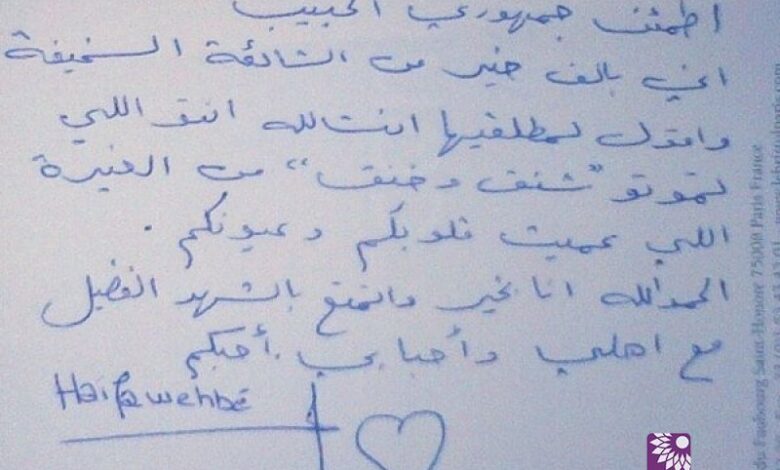 اطمئن جمهوري الحبيب
اني بالف خير من الشائعة السخيفة
واقول لمطلقيها انشالله انتو اللي
تموتو "شنق وخنق" من الغيرة
اللي عميت قلوبكم وعيونكم.
الحمدالله انا بخير واتمتع بالشهر الفضيل
مع اهلي وأحبابي. أحبكم
Haifa wehbé
Faubourg Saint-Honoré 75008 Paris France